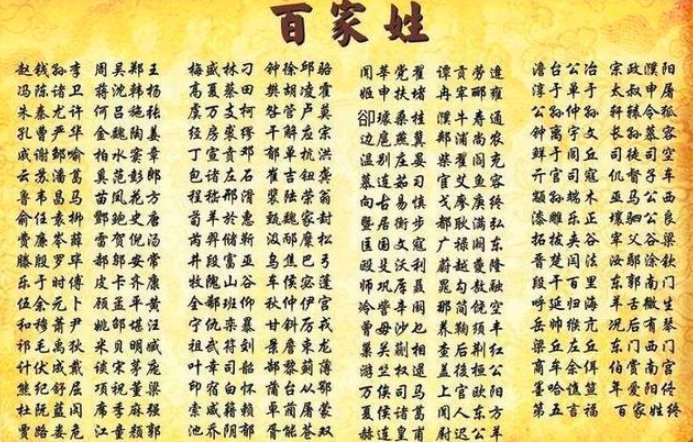 百家姓
赵钱孙李 周吴郑王
冯陈诸卫 蒋沈韩杨
朱秦尤许 何吕施张
孔曹严华 金魏陶姜
戚谢邹喻 柏水窦章
云苏潘葛 奚范彭郎
鲁韦昌马 苗凤花方
俞任袁柳 酆鲍史唐
费廉岑薛 雷贺倪汤
滕殷罗毕 郝邬安常
乐于时傅 皮卡齐康
伍余元卜 顾孟平黄
和穆萧尹 姚邵堪汪
祁毛禹狄 米贝明臧
计伏成戴 谈宋茅庞
熊纪舒屈 项祝董梁
杜阮蓝闵 席季麻强
贾路娄危 江童颜郭
梅盛林刁 钟徐邱骆
高夏蔡田 樊胡凌霍
虞万支柯 昝管卢莫
经房裘缪 干解应宗
丁宣贲邓 郁单杭洪
包诸左石 崔吉钮龚
程嵇邢滑 裴陆荣翁
荀羊於惠 甄魏家封
芮羿储靳 汲邴糜松
井段富巫 乌焦巴弓
牧隗山谷 车侯宓蓬
全郗班仰 秋仲伊宫
宁仇栾暴 甘钭厉戎
祖武符刘 景詹束龙
叶幸司韶 郜黎蓟薄
印宿白怀 蒲台从鄂
索咸籍赖 卓蔺屠蒙
池乔阴郁 胥能苍双
闻莘党翟 谭贡劳逄
姬申扶堵 冉宰郦雍
卻璩桑桂 濮牛寿通
边扈燕冀 郏浦尚农
温别庄晏 柴瞿阎充
慕连茹习 宦艾鱼容
向古易慎 戈廖庾终
暨居衡步 都耿满弘
匡国文寇 广禄阙东
殴殳沃利 蔚越夔隆
师巩厍聂 晁勾敖融
冷訾辛阚 那简饶空
曾毋沙乜 养鞠须丰
巢关蒯相 查后荆红
游竺权逯 盖益桓公
万俟司马 上官欧阳
夏侯诸葛 闻人东方
赫连皇甫 尉迟公羊
澹台公冶 宗政濮阳
淳于单于 太叔申屠
公孙仲孙 轩辕令狐
钟离宇文 长孙慕容
鲜于闾丘 司徒司空
亓官司寇 仉督子车
颛孙端木 巫马公西
漆雕乐正 壤驷公良
拓拔夹谷 宰父谷梁
晋楚闫法 汝鄢涂钦
段干百里 东郭南门
呼延归海 羊舌微生
岳帅缑亢 况后有琴
梁丘左丘 东门西门
商牟佘佴 伯赏南宫
墨哈谯笪 年爱阳佟
第五言福 百家姓终